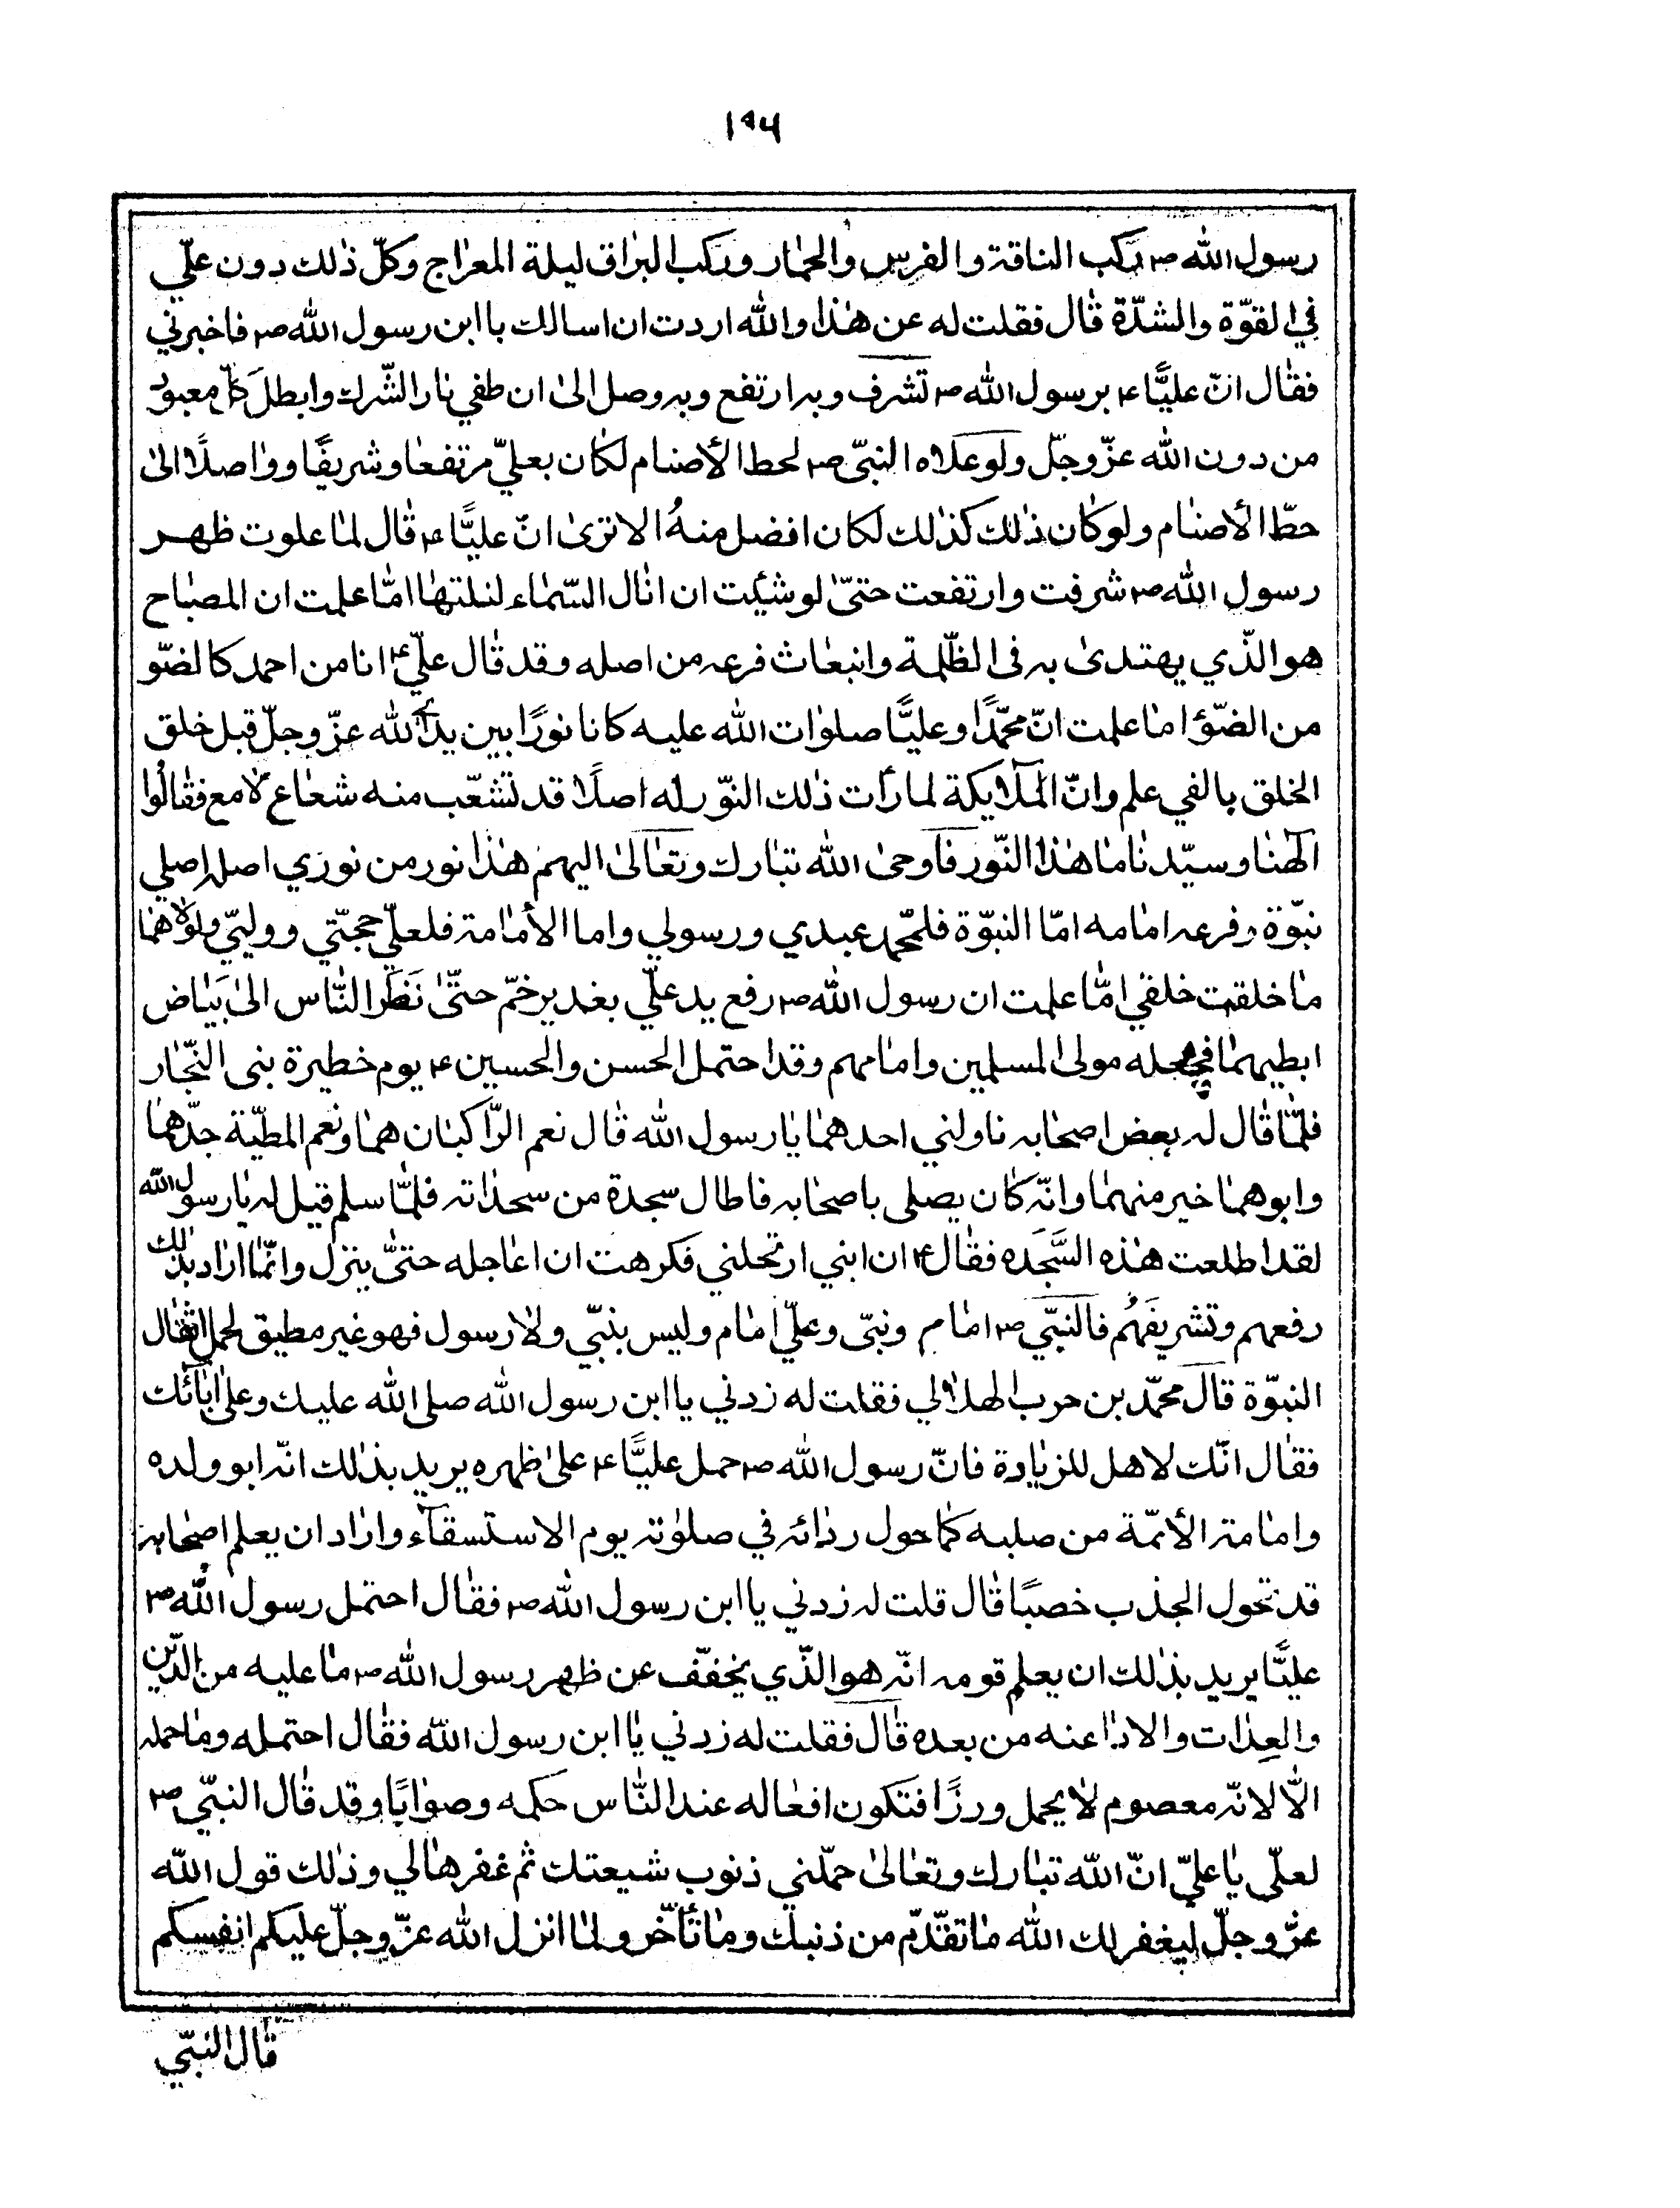 ١٩٦
رسول الله ص ركب الناقة والفرس والحمار وركب البراق ليلة المعراج وكلّ ذلك دون علّي
في القوّة والشدّة قال فقلت له عن هذا والله اردت ان اسالك يا ابن رسول الله ص فاخبرني
فقال انّ عليًّا ع برسول الله ص تشرف وبه ارتفع وبه وصل الى ان طفي نار الشّرك وابطل كلّ معبود
من دون الله عزّ وجلّ ولو علاه النبيّ ص لحط الأصنام لكان بعليّ مرتفعا وشريفًا وواصلًا الى
حطّ الأصنام ولو كان ذلك كذلك لكان افضل منهُ الا ترى انّ عليًّا ع قال لما علوت ظهر
رسول الله ص شرفت وارتفعت حتىّ لو شئت ان انال السّماء لنلتها امّا علمت ان المصباح
هو الّذي يهتدى به فى الظّلمة وانبعاث فرعه من اصله وقد قال علّي ع انا من احمد كالضّو
من الضّوٴ اما علمت انّ محمّدًا وعليًّا صلوات الله عليه كانا نورًا بين يدي الله عزّ وجلّ قبل خلق
الخلق بالفي علم وانّ الملايكة لما رأت ذلك النوّر له اصلًا قد تشعّب منه شعاع لامع فقالُوا
الهنا وسيّدنا ما هذا النّور فاوحى الله تبارك وتعالى اليهم هذا نور من نوري اصله اصلي
نبّوة وفرعه امامه امّا النبّوة فلمحّمد عبدي ورسولي واما الأمامة فلعليّ حجّتي ووليّي ولولاهما
ما خلقت خلقي امّا علمت ان رسول الله ص رفع يد علّي بغدير خمّ حتّى نَظَر النّاس الى بَيَاض
ابطيهما فجعله مولى المسلمين وامامهم وقد احتمل الحسن والحسين ع يوم خطيرة بنى النّجّار
فلمّا قال له بعض اصحابه ناولني احدهما يا رسول الله قال نعم الرّاكبان هما ونعم المطيّة جدّهما
وابوهما خير منهما وانّه كان يصلى باصحابه فاطال سجدة من سجداته فلمّا سلم قيل له يا رسول الله
لقد اطلعت هذه السَّجَده فقال ع ان ابني ارتحلني فكرهت ان اعاجله حتىّ ينزل وانّما اراد بذلك
رفعهم وتشريفَهُم فالنبّي ص امام ونبىّ وعليّ امام وليس بنبّي ولا رسول فهو غير مطيق لحمل اثقال
النبوّة قال محمّد بن حرب الهلالي فقلت له زدني يا ابن رسول الله صلى الله عليك وعلى ابائك
فقال انّك لاهل للزيادة فانّ رسول الله ص حمل عليًّا ع على ظهره يريد بذلك انّه ابو ولده
وامامة الأئمّة من صلبه كما حول ردائه في صلوته يوم الاستسقآء واراد ان يعلم اصحابه
قد تحول الجذب خصبًا قال قلت له زدني يا ابن رسول الله ص فقال احتمل رسول الله ص
عليًّا يريد بذلك ان يعلم قومه انّه هو الّذي يخفّف عن ظهر رسول الله ص ما عليه من الدّين
والعدات والادا عنه من بعده قال فقلت له زدني يا ابن رسول الله فقال احتمله وما حمله
الّا لانّه معصوم لا يحمل ورزًا فتكون افعاله عند النّاس حكمه وصوابًا وقد قال النبّي ص
لعلّى يا عليّ انّ الله تبارك وتعالى حمّلني ذنوب شيعتك ثم غفرها لي وذلك قول الله
عزّ وجلّ ليغفر لك الله ما تقدّم من ذنبك وما تأخّر ولما انزل الله عزّ وجلّ عليكم انفسكم
قال النبّي